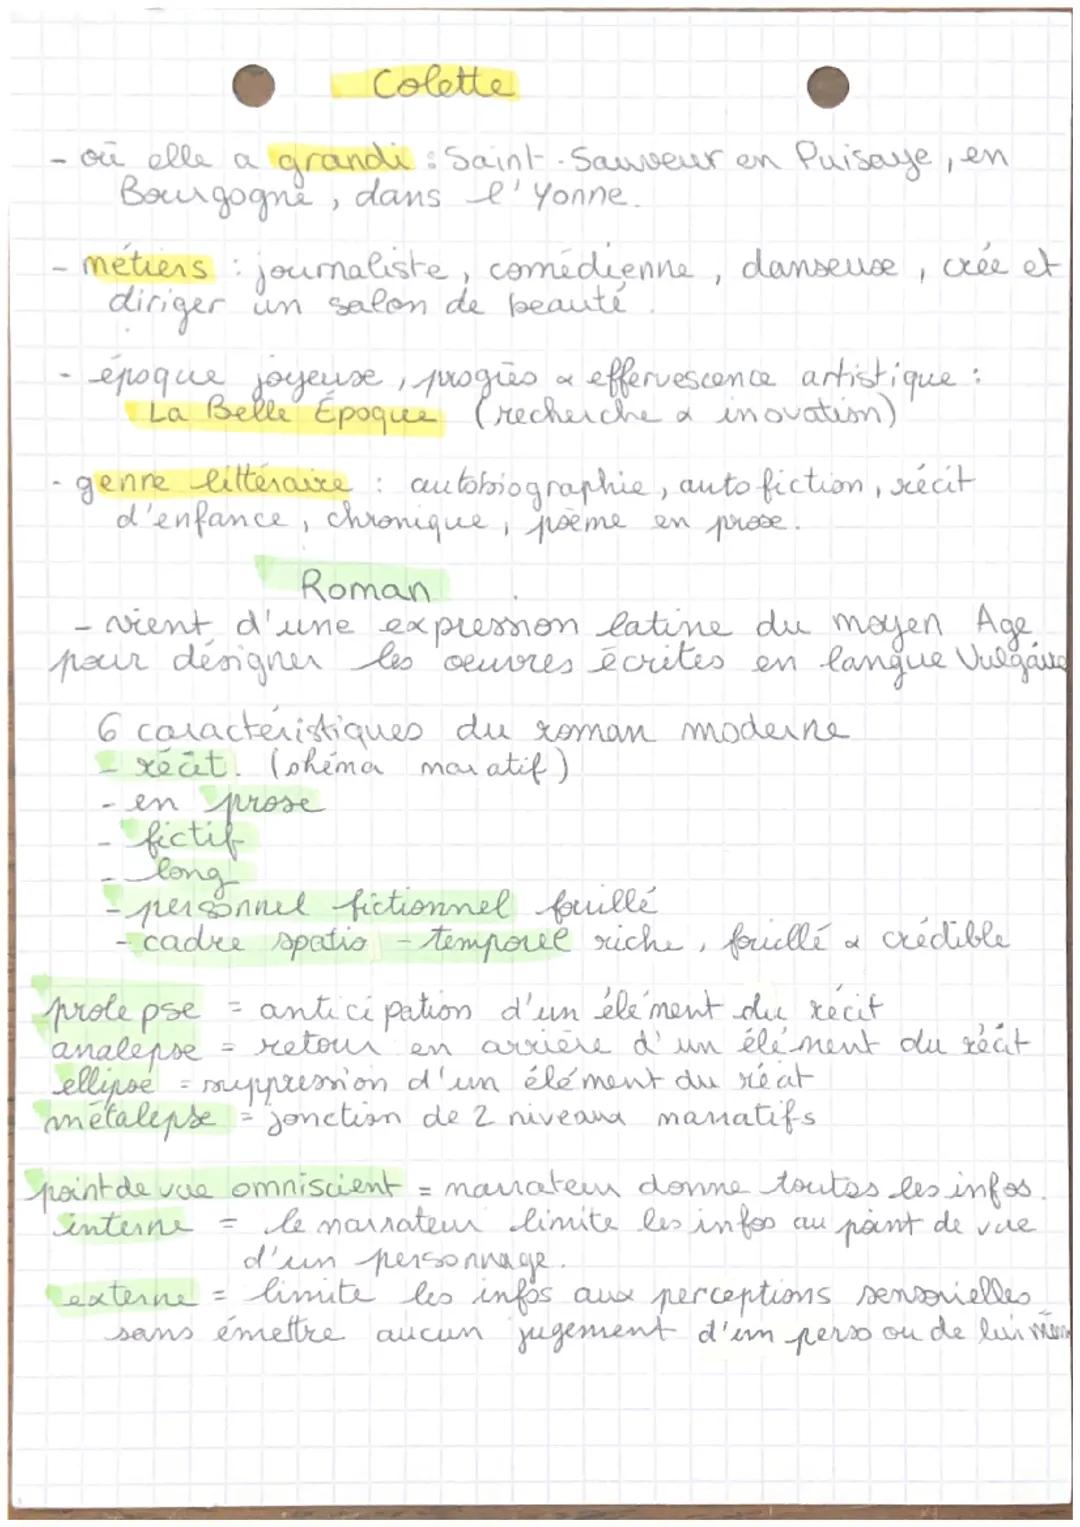 Colette
- où elle a grandi : Saint-Sauveur en Puisaye, en
Bourgogne, dans l'Yonne.
- métiers : journaliste, comédienne, danseuse, crée et
diriger un salon de beauté.
- époque joyeuse, progrès & effervescence artistique :
La Belle Époque (recherche & inovation)
- genre littéraire : autobiographie, auto fiction, récit
d'enfance, chronique, poème en prose.
Roman
- vient d'une expression latine du moyen Age
pour désigner les oeuvres écrites en langue Vulgaire
6 caractéristiques du roman moderne
- récit. (shéma narratif)
- en prose
- fictif
- long
- personnel fictionnel fouillé
- cadre spatio-temporel riche, fouillé & crédible
prolepse = anticipation d'un élément du récit
analepse = retour en arrière d'un élément du récit
ellipse = suppression d'un élément du récit
métalepse = jonction de 2 niveaux narratifs
point de vue omniscient = narrateur donne toutes les infos.
interne = le narrateur limite les infos au point de vue
d'un personnage.
externe = limite les infos aux perceptions sensorielles
sans émettre aucun jugement d'un perso ou de lui mêm